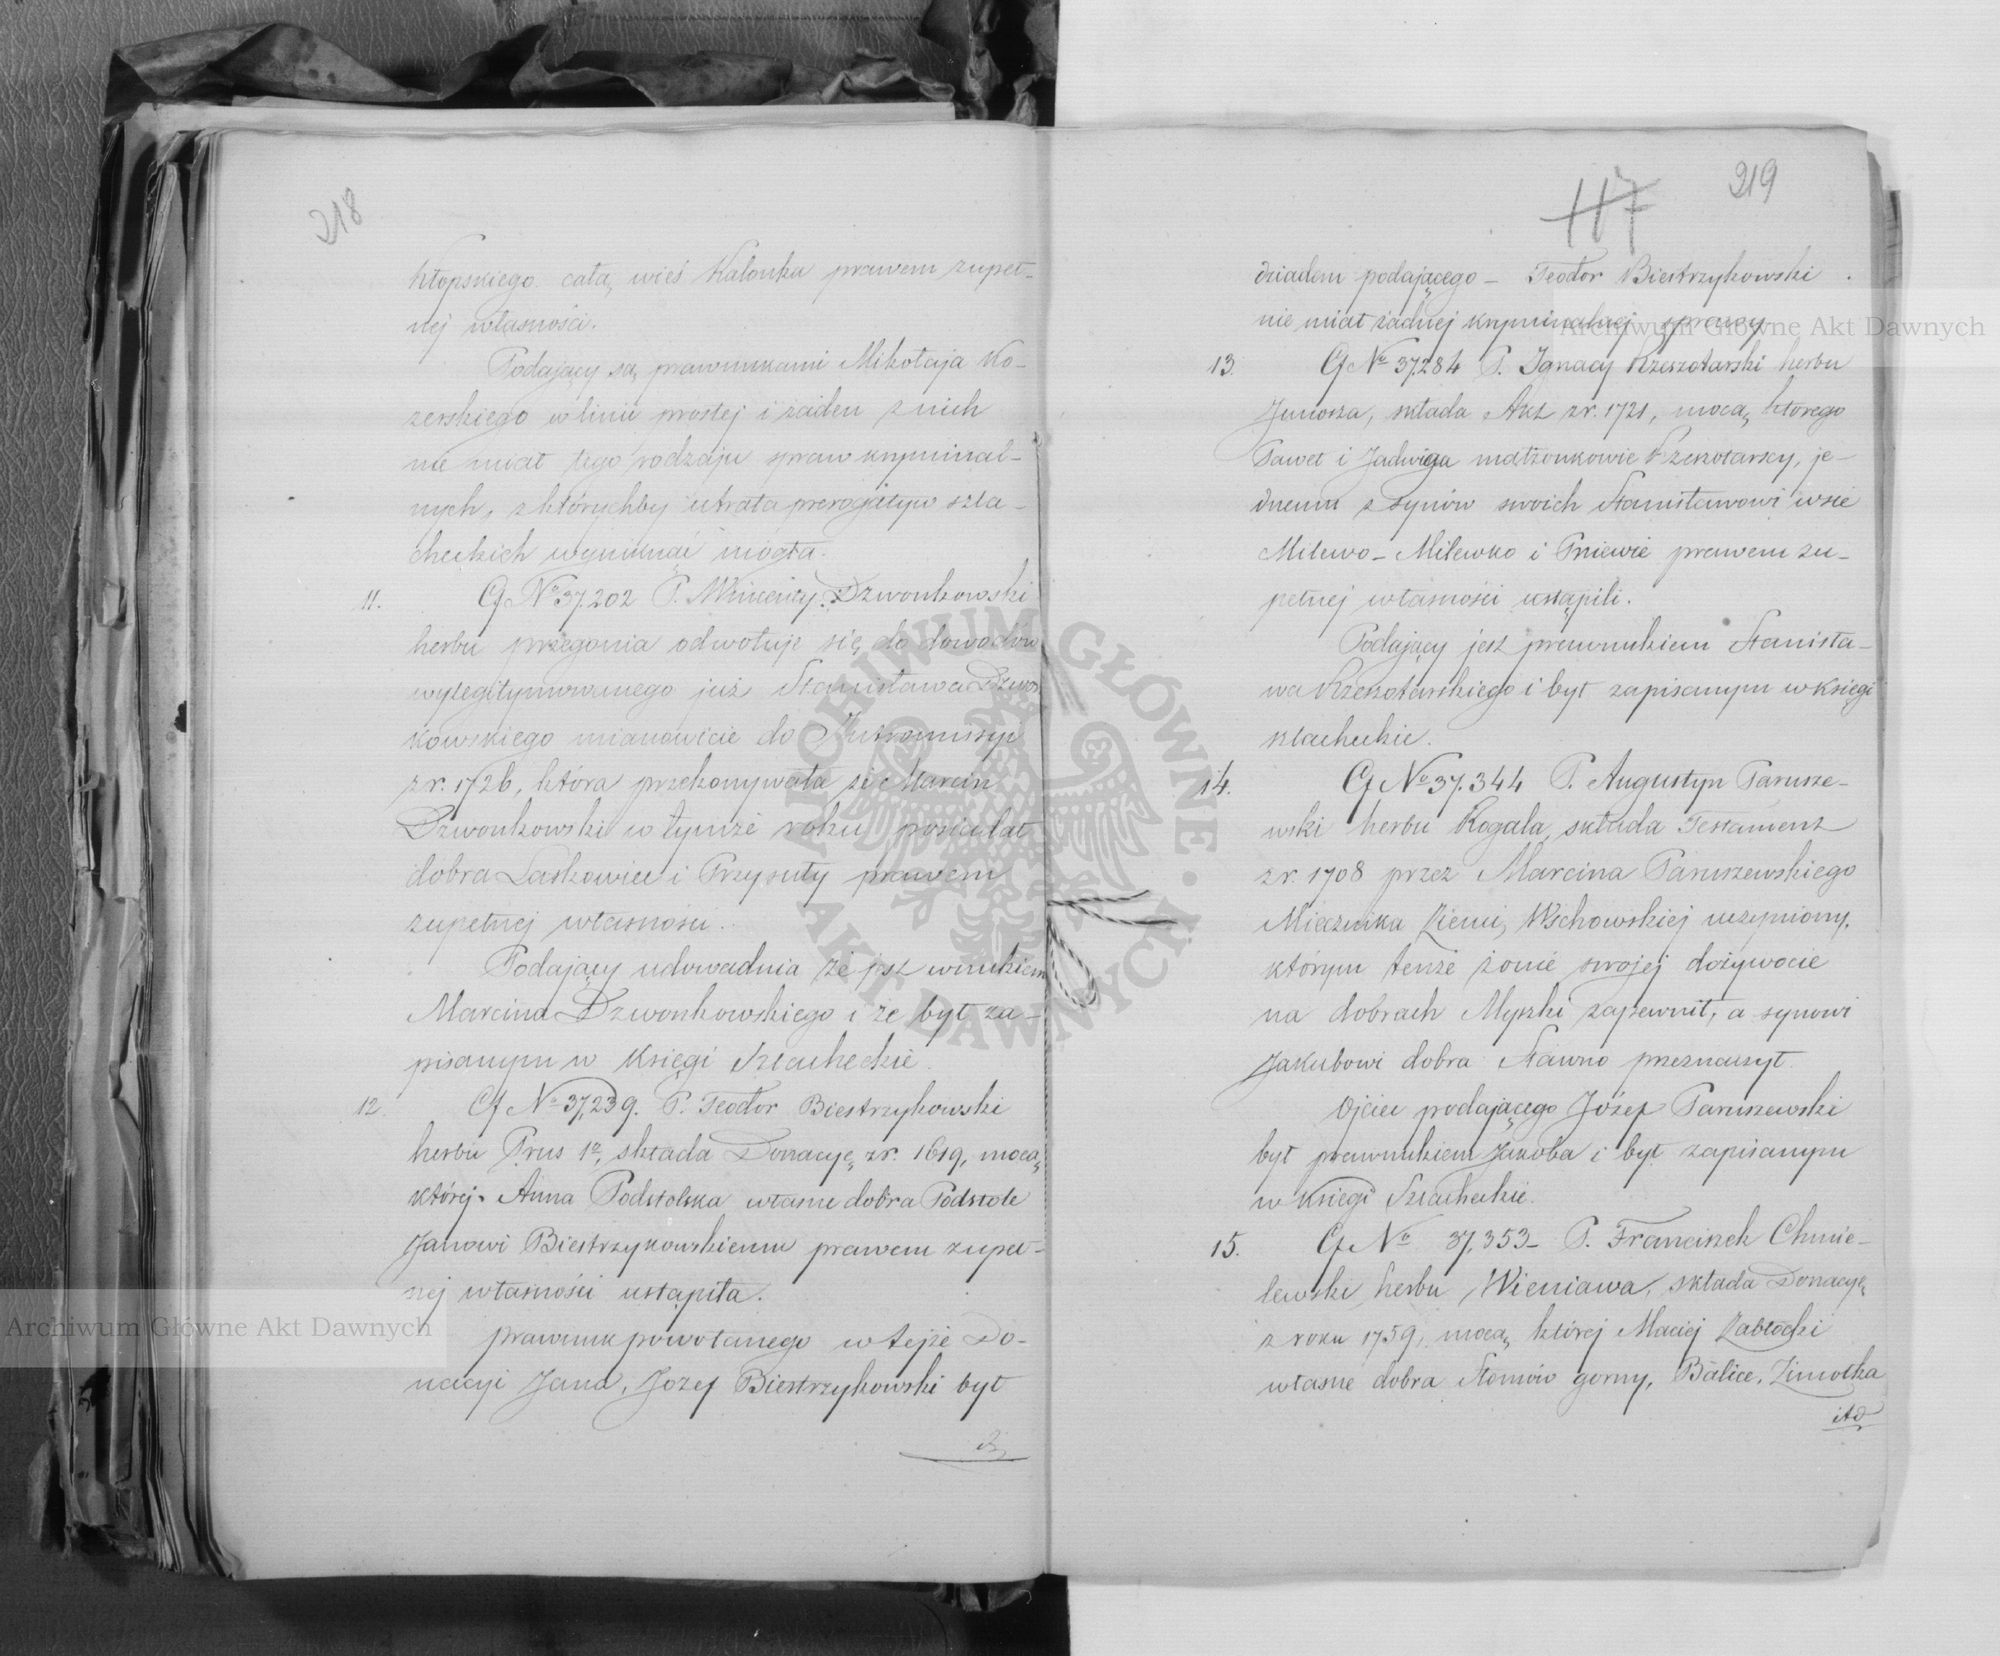 218
Kłopskiego całą wieś Kalonka prawem zupeł-
nej własności.
Podający są prawnukami Mikołaja Ko-
zerskiego w linii prostej i żaden z nich
nie miał tego rodzaju spraw kryminal-
nych, z którychby utrata prerogatyw szla-
checkich wyniknąć mogła.
11. Cf No 37,202 P. Wincenty Dzwonkowski
herbu przegonia odwołuje się do dowodów
wylegitymowanego już Stanisława Dzwon
kowskiego mianowicie do Intromisyi
z r. 1726, która przekonywała że Marcin
Dzwonkowski w tymże roku posiadał
dobra Laskowiec i Przysuty prawem
zupełnej własności.
Podający udowadnia że jest wnukiem
Marcina Dzwonkowskiego i że był za-
pisanym w Księgi Szlacheckie.
12. Cf No 37,239. P. Teodor Biestrzykowski
herbu Prus 1o, składa Donacyę z r. 1619, mocą
której Anna Podstolska własne dobra Podstole
Janowi Biestrzykowskiemu prawem zupeł-
nej własności ustąpiła.
prawnuk powołanego w tejże Do-
nacyi Jana, Józef Biestrzykowski był
219
117
dziadem podającego – Teodor Biestrzykowski
nie miał żadnej kryminalnej sprawy
13. Cf No 37,284 P. Ignacy Rzeszotarski herbu
Junosza, składa Akt z r. 1721, mocą którego
Paweł i Jadwiga małżonkowie Rzeszotarscy, je-
dnemu z synów swoich Stanisławowi wsie
Milewo-Milewko i Pniewie prawem zu-
pełnej własności ustąpili.
Podający jest prawnukiem Stanisła-
wa Rzeszotarskiego i był zapisanym w księgi
szlacheckie.
14. Cf No 37.344 P. Augustyn Parusze-
wski herbu Rogala, składa Testament
z r. 1708 przez Marcina Paruszewskiego
Miecznika Ziemi Wschowskiej uczyniony,
którym tenże żonie swojej dożywocie
na dobrach Myszki zapewnił, a synowi
Jakubowi dobra Sławno przeznaczył.
Ojciec podającego Józef Paruszewski
był prawnukiem Jakoba i był zapisanym
w księgi Szlacheckie.
15. Cf No 37,353 – P. Franciszek Chmie-
lewski herbu Wieniawa, składa Donacyę
z roku 1759, mocą której Maciej Zabłocki
własne dobra Słomów gorny, Balice, Zimotka
itd
Archiwum Główne Akt Dawnych
Archiwum Główne Akt Dawnych
ARCHIWUM GŁÓWNE · AKT DAWNYCH ·